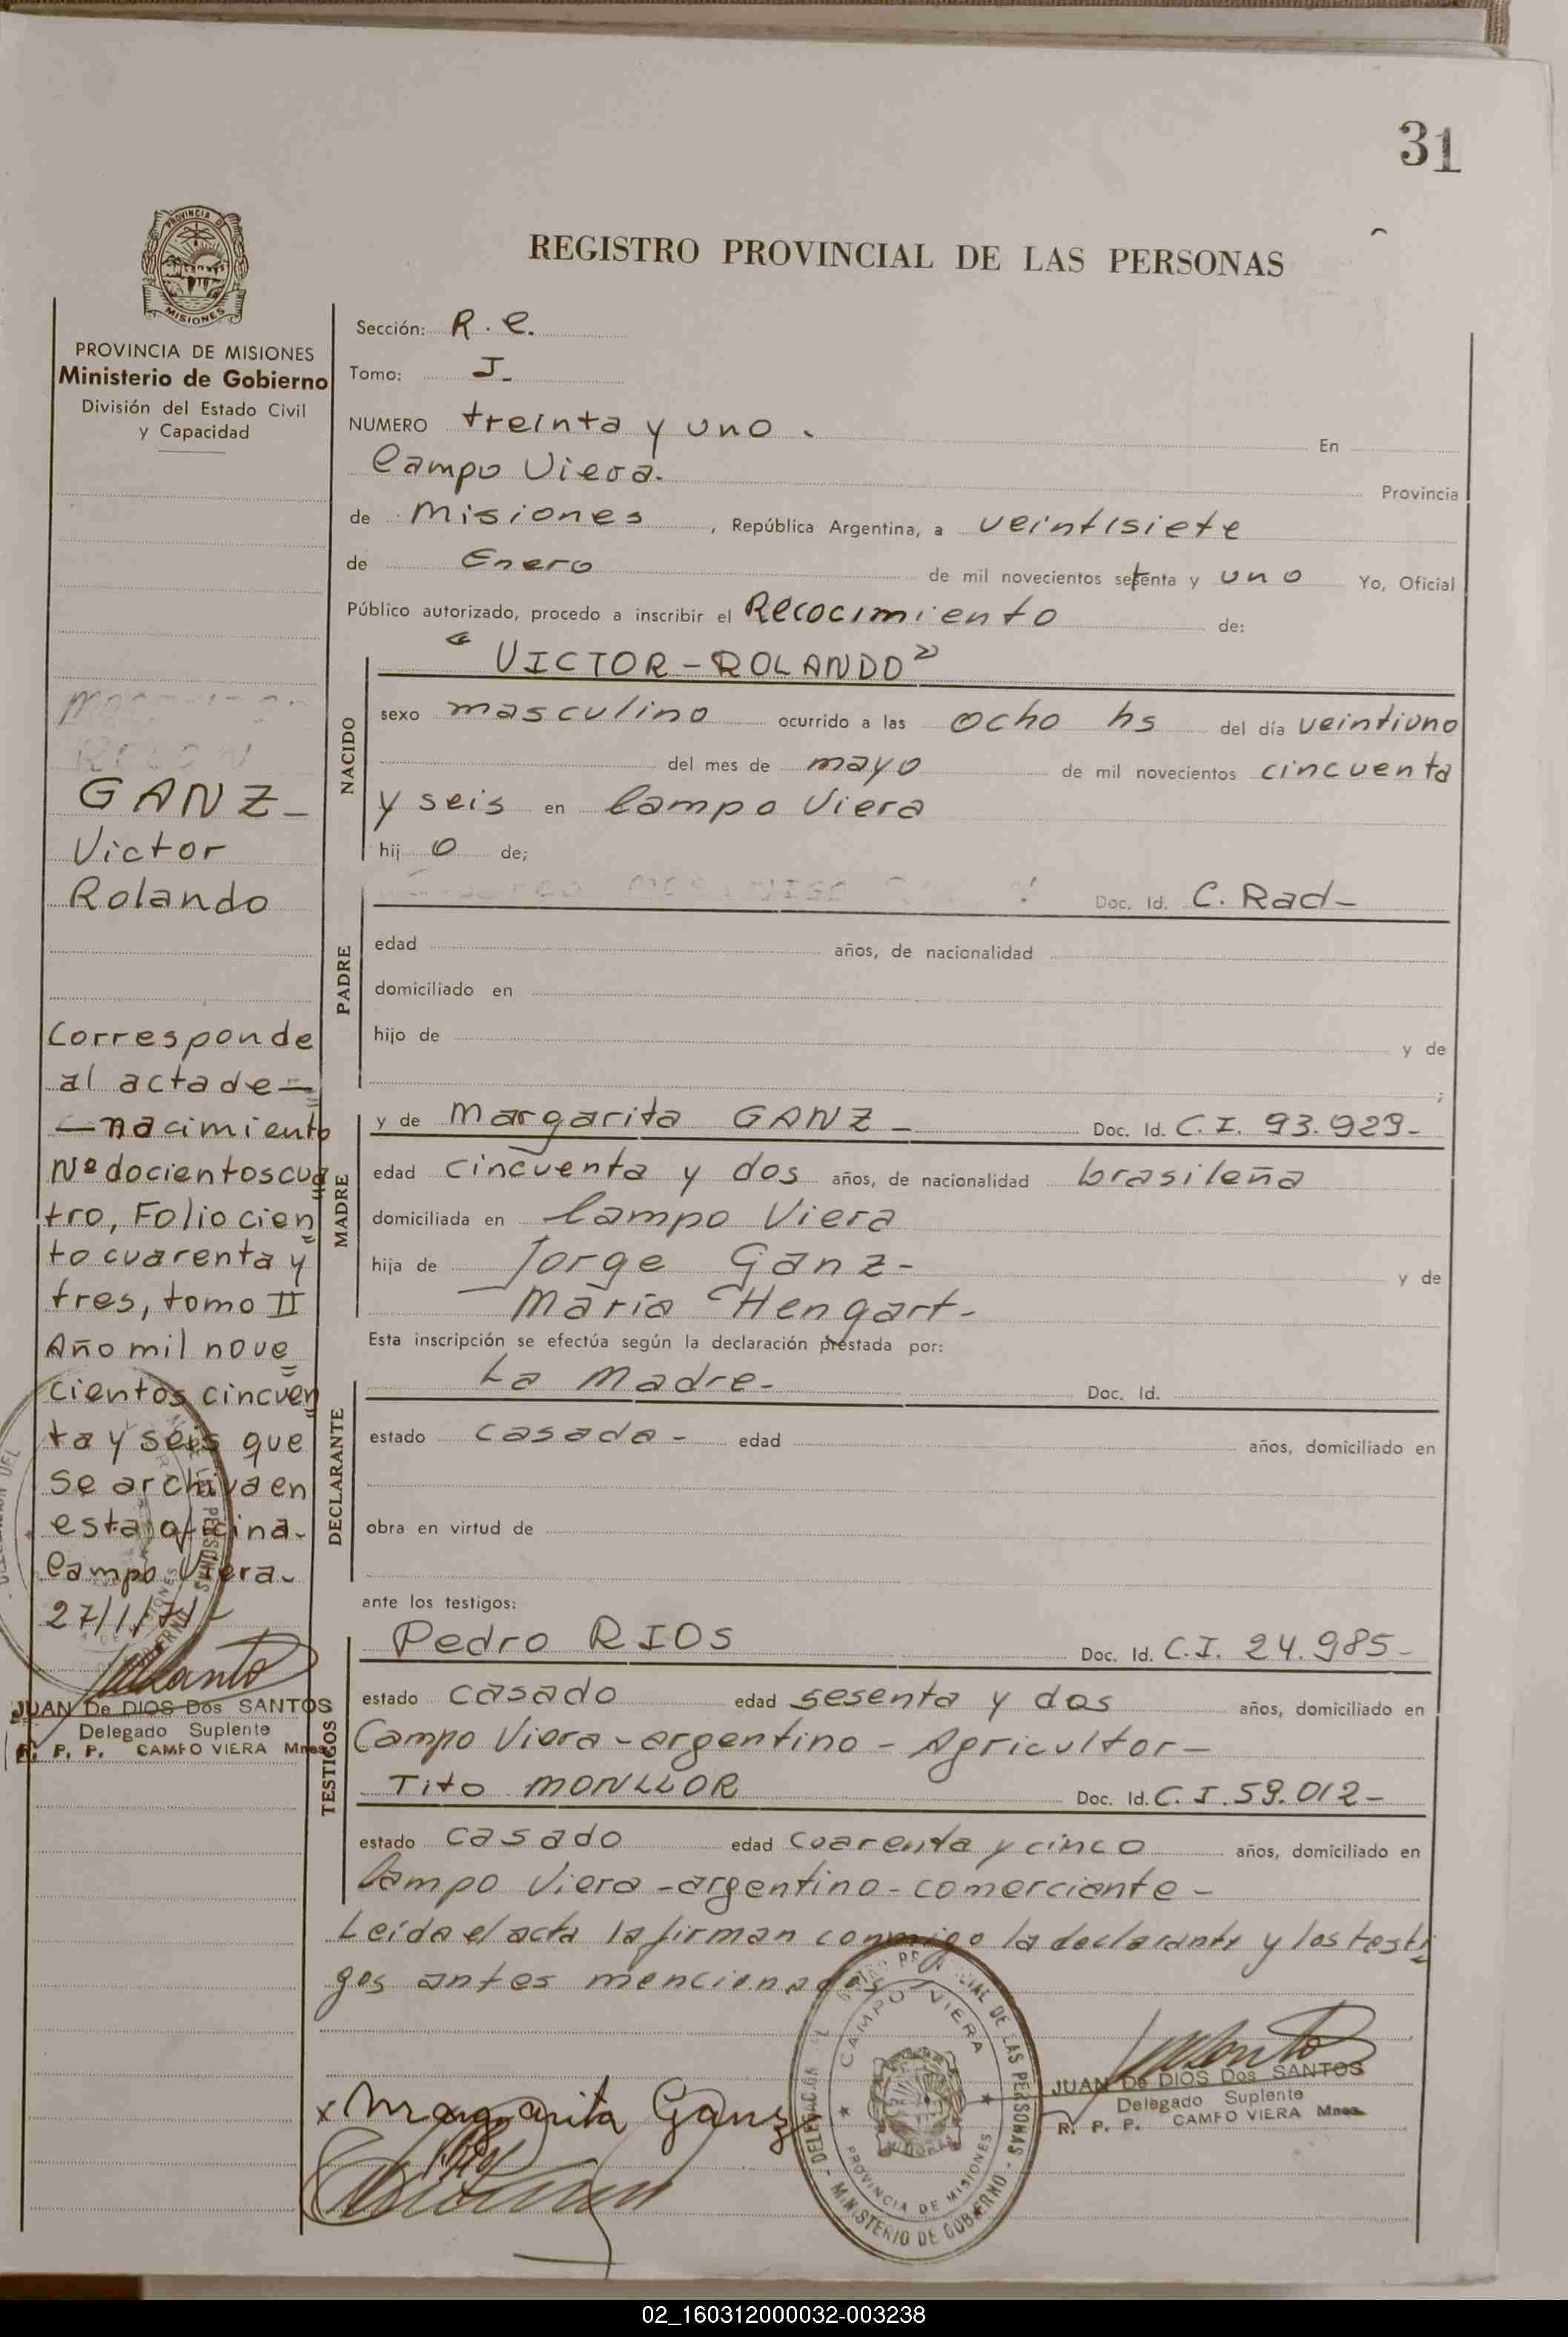 31
REGISTRO PROVINCIAL DE LAS PERSONAS
PROVINCIA DE
MISIONES
PROVINCIA DE MISIONES
Ministerio de Gobierno
División del Estado Civil
y Capacidad
GANZ-
Victor
Rolando
Corresponde
al acta de-
-nacimiento
Nº docientos cua
tro, Folio cien
to cuarenta y
tres, tomo II
Año mil nove
cientos cincuen
ta y seis que
se archiva en
esta oficina-
Campo Viera-
27/1/71-
JUAN De DIOS Dos SANTOS
Delegado Suplente
R. P. P. CAMPO VIERA Mnes.
Sección: R.C.
Tomo: I-
NUMERO treinta y uno. En
Campo Viera. Provincia
de Misiones, República Argentina, a veintisiete
de Enero de mil novecientos setenta y uno Yo, Oficial
Público autorizado, procedo a inscribir el Recocimiento de:
"VICTOR-ROLANDO"
NACIDO
sexo masculino ocurrido a las ocho hs del día veintiuno
del mes de mayo de mil novecientos cincuenta
y seis en Campo Viera
hij o de;
PADRE
Doc. Id. C. Rad-
edad años, de nacionalidad
domiciliado en
hijo de y de
;
MADRE
y de Margarita GANZ- Doc. Id. C.I. 93.929-
edad cincuenta y dos años, de nacionalidad brasileña
domiciliada en Campo Viera
hija de Jorge Ganz- y de
Maria Hengart-
Esta inscripción se efectúa según la declaración prestada por:
DECLARANTE
La Madre- Doc. Id.
estado casada- edad años, domiciliado en
obra en virtud de
ante los testigos:
TESTIGOS
Pedro RIOS Doc. Id. C.I. 24.985-
estado casado edad sesenta y dos años, domiciliado en
Campo Viera-argentino-Agricultor-
Tito MONLLOR Doc. Id. C.I. 59.012-
estado casado edad cuarenta y cinco años, domiciliado en
Campo Viera-argentino-comerciante-
Leída el acta la firman conmigo la declarante y los testi
gos antes mencionados
x Margarita Ganz
CAMPO VIERA
PROVINCIA DE MISIONES
MINISTERIO DE GOBIERNO
JUAN De DIOS Dos SANTOS
Delegado Suplente
R. P. P. CAMPO VIERA Mnes.
02_160312000032-003238